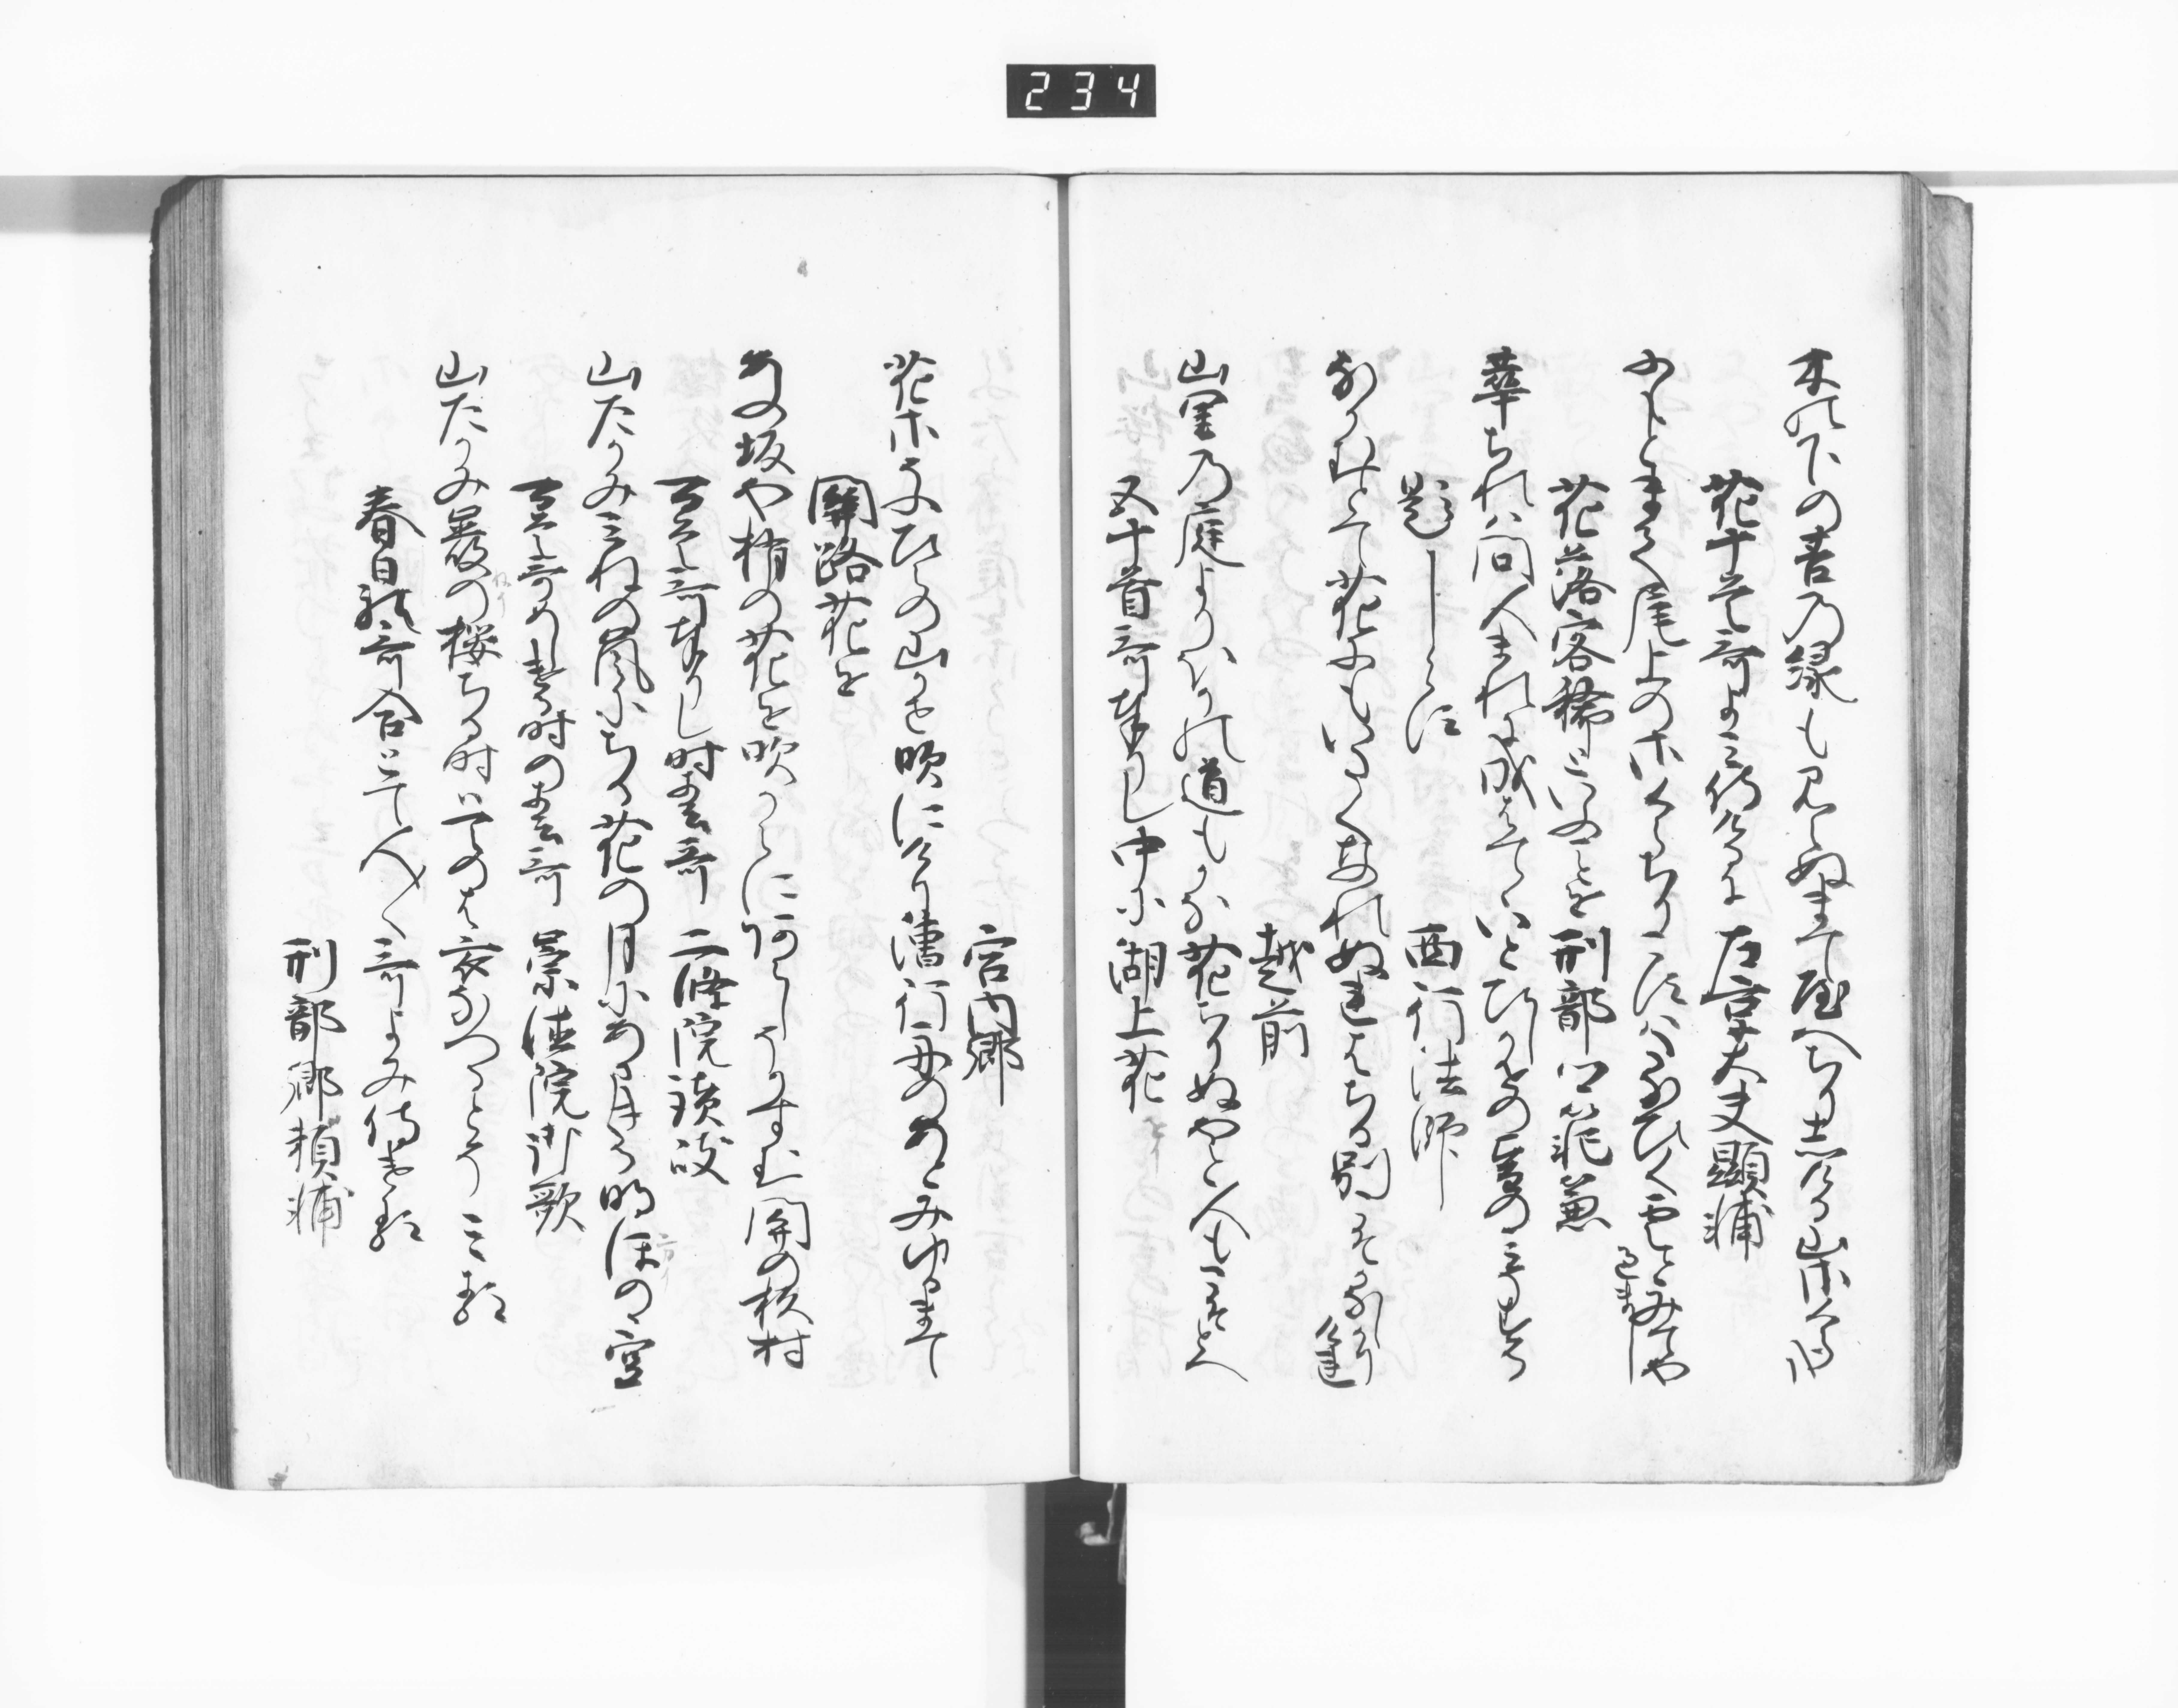 234
木の下の苔乃緑も見えぬまて八重ちりしける山桜かな
花十首哥よみ侍けるに 左京大夫顕輔
ふもとまて尾上の木くらちりこすはたなひく雲とみてや過まし
花落客稀といふことを 刑部卿範兼
華ちれは問人まれに成はてゝいとひし風の音のみそする
題しらす 西行法師
なかむとて花にもいたくなれぬれはちる別こそかなしかりけれ
越前
山里乃庭よりほかの道もかな花ちりぬやと人もこそとへ
五十首哥奉りし中に湖上花
宮内卿
花さそふひらの山かせ吹にけり漕行舟のあとみゆるまて
関路花を
あふ坂や梢の花を吹からに阿らしそかすむ関の杉村
百首哥奉りし時春哥 二條院讃岐
山たかみみねの嵐にちる花の月にあまきる明ほのゝ空
百首哥めしける時の春哥 崇徳院御歌
山たかみ巌の桜ちる時は天のは衣なつるとそみる
春日社哥合とて人々哥よみ侍ける
刑部卿頼輔